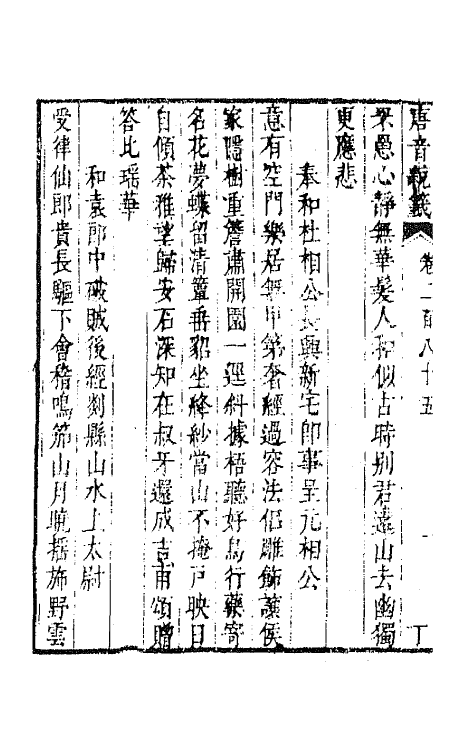 唐音統籤 卷二百八十五 丁
衆愚心靜無華髮人和似古時别君遠山去幽獨
更應悲
奉和杜相公長興新宅即事呈元相公
意有空門樂居無甲第奢經過容法侶雕飾讓侯
家隱樹重簷肅開園一逕斜據梧聽好鳥行藥寄
名花夢蝶留清簟垂貂坐絳紗當山不掩戸映日
自傾茶雅望歸安石深知在叔牙還成吉甫頌贈
答比瑶華
和袁郎中破賊後經剡縣山水上太尉
受律仙郎貴長驅下會稽鳴笳山月曉摇旆野雲